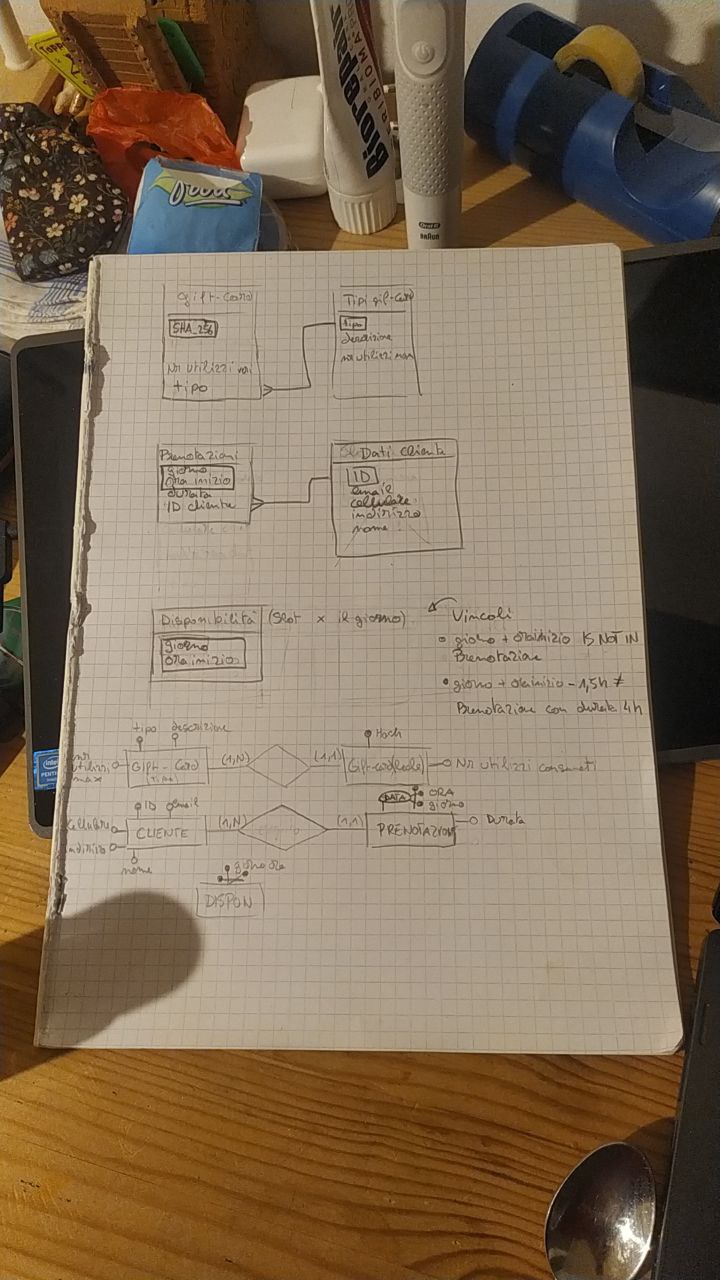 Biorepair
Oral B
BRAUN
Gift-Card
SHA_256
Nr utilizzi
tipo
Tipi gif-card
tipo
descrizione
nr utilizzi max
Prenotazioni
giorno
Ora inizio
durata
ID cliente
Dati cliente
ID
email
cellulare
indirizzo
nome
Disponibilità (Slot x il giorno)
giorno
Ora inizio
Vincoli
giorno + orainizio IS NOT IN
Prenotazione
giorno + orainizio - 1,5h ≠
Prenotazione con durata 4h
tipo descrizione
nr
utilizzi
max
Gift-Card
(tipo)
(1,N)
(1,1)
Hash
Nr utilizzi consumati
ID email
cellulare
indirizzo
nome
CLIENTE
(1,N)
(1,1)
DATA
ORA
giorno
PRENOTAZIONI
Durata
giorno ora
DISPON
intel
PENTIUM